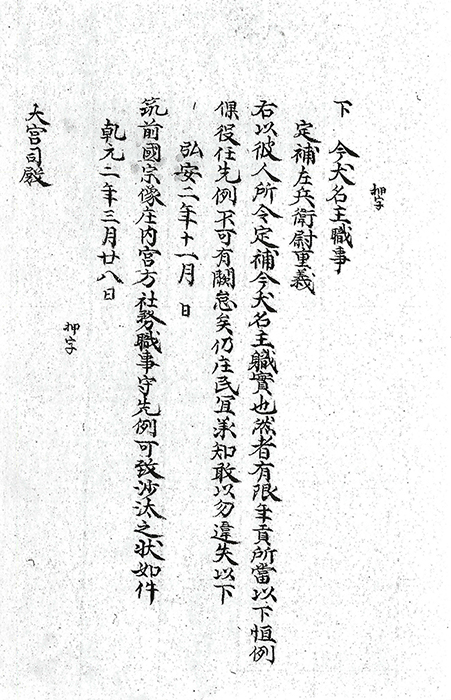 押字
下　今犬名主職事
定補左兵衛尉重義
右以彼人所令定補今犬名主職實也然者有限年貢所當以下恒例
保役任先例不可有闕怠矣仍庄民冝承知敢以勿違失以下
弘安二年十一月　日
筑前國宗像庄内宮方社務職事守先例可致沙汰之状如件
乾元二年三月廿八日
押字
大宮司殿